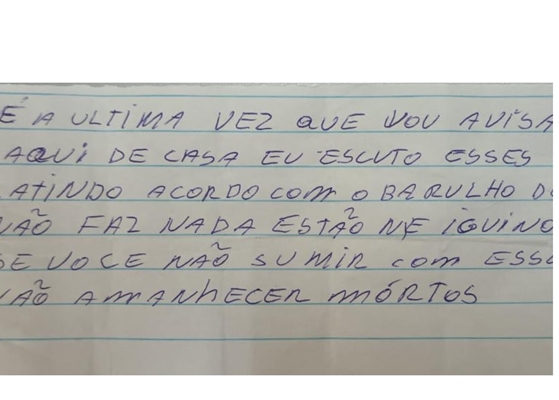 É A ULTIMA VEZ QUE VOU AVISA
AQUI DE CASA EU ESCUTO ESSES
LATINDO ACORDO COM O BARULHO D
NÃO FAZ NADA ESTÃO ME IGUINO
SE VOCE NÃO SUMIR COM ESSE
VÃO AMANHECER MÓRTOS